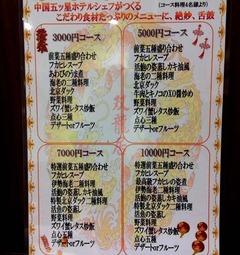 中国五ッ星ホテルシェフがつくる
(コース料理4名様より)
こだわり食材たっぷりのメニューに、絶妙、舌鼓
3000円コース
前菜五種盛り合わせ
フカヒレスープ
あわびの水煮
海老の二種料理
北京ダック
活魚の姿蒸し
ズワイ蟹レタス炒飯
点心三種
デザートorフルーツ
5000円コース
前菜五種盛り合わせ
フカヒレスープ
活鮑の姿蒸しカキ油風
海老の二種料理
北京ダック
牛肉とキノコのXO醤炒め
活魚の姿蒸し
ズワイ蟹レタス炒飯
点心三種
デザートorフルーツ
7000円コース
特選前菜五種盛り合わせ
フカヒレスープ
伊勢海老二種料理
活鮑の姿蒸しカキ油風
特製北京ダック二種料理
活魚の姿蒸し
野菜炒め
ズワイ蟹レタス炒飯
点心五種
デザートorフルーツ
10000円コース
特選前菜五種盛り合わせ
最高級フカヒレの姿煮
伊勢海老三種料理
活鮑の姿蒸しカキ油風
特製北京ダック三種料理
活魚の姿蒸し
野菜炒め
ズワイ蟹レタス炒飯
点心五種
デザートorフルーツ